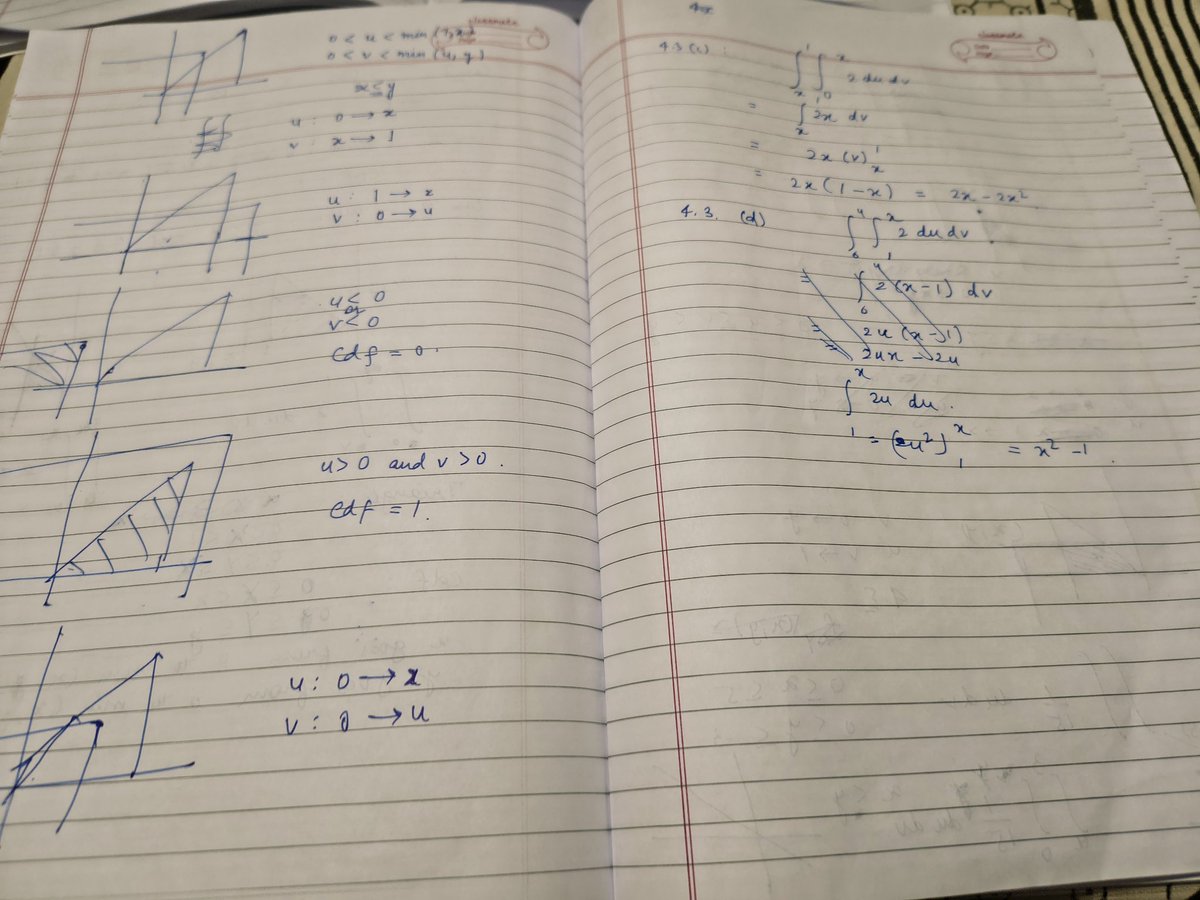 classmate
0 < u < min (1, x)
0 < v < min (u, y)
x ≤ y
u : 0 → x
v : x → 1
u : 1 → x
v : 0 → u
u < 0
or
v < 0
Cdf = 0.
u > 0 and v > 0.
Cdf = 1.
u : 0 → x
v : 0 → u
classmate
Date
Page
4.3 (c) : ∫_x^1 ∫_0^x 2 du dv
= ∫_x^1 2x dv
= 2x (v)_x^1
= 2x (1 - x) = 2x - 2x²
4.3. (d) ∫_0^u ∫_1^x 2 du dv.
= ∫_0^u 2 (x - 1) dv
= 2u (x - 1)
= 2ux - 2u
∫_1^x 2u du.
= (u²)_1^x = x² - 1.